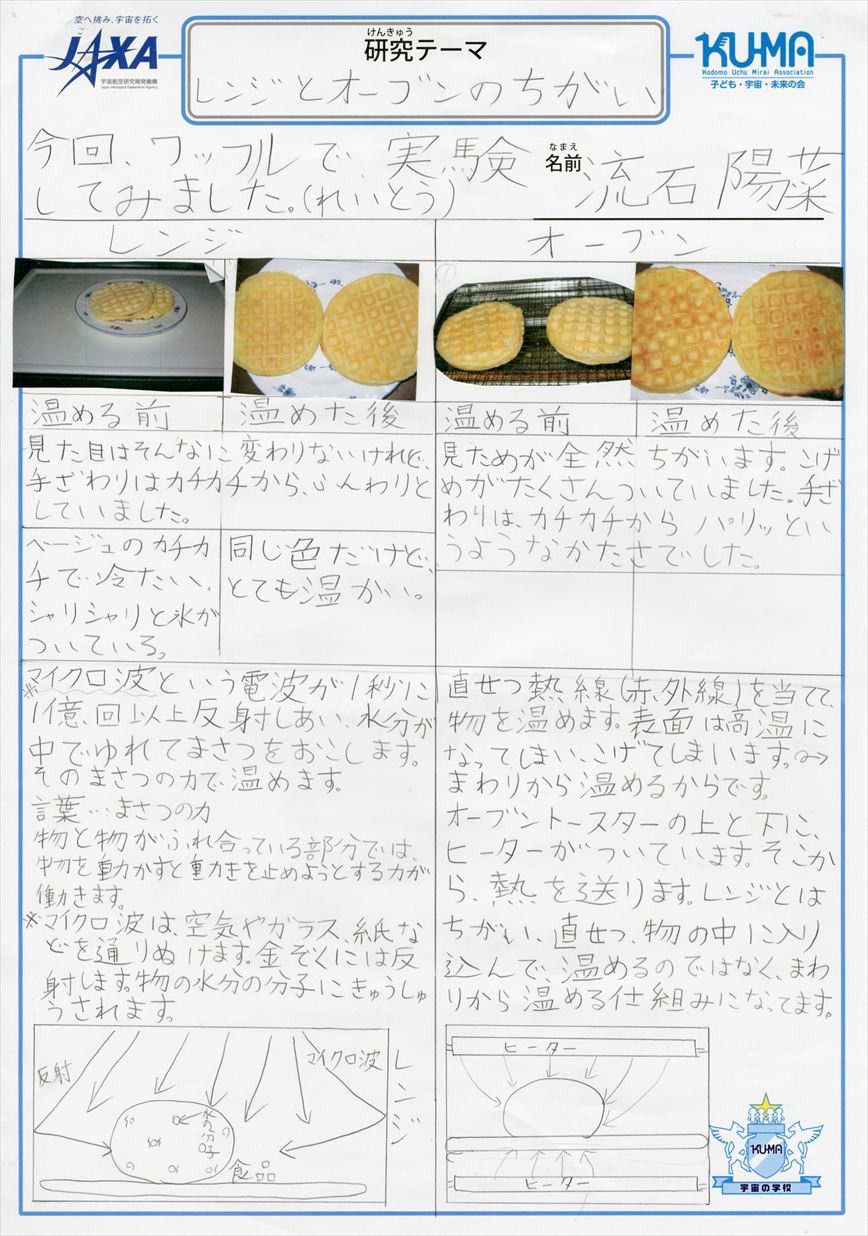 空へ挑み、宇宙を拓く
JAXA
宇宙航空研究開発機構
Japan Aerospace Exploration Agency
けんきゅう
研究テーマ
レンジとオーブンのちがい
KU-MA
Kodomo Uchu Mirai Association
子ども・宇宙・未来の会
今回、ワッフルで、実験
してみました。(れいとう)
なまえ
名前
流石 陽菜
レンジ
オーブン
①
温める前
温めた後
温める前
温めた後
見た目はそんなに変わりないけれど、
手ざわりはカチカチから、ふんわりと
していました。
見ためが全然ちがいます。こげ
めがたくさんついていました。手ざ
わりは、カチカチからパリッとい
うようなかたさでした。
ベージュのカチカ
チで冷たい。
シャリシャリと氷が
ついている。
同じ色だけど、
とても温かい。
※マイクロ波という電波が1秒に
1億回以上反射しあい、水分が
中でゆれてまさつをおこします。
そのまさつの力で温めます。
言葉…まさつの力
物と物がふれ合っている部分では、
物を動かすと動きを止めようとする力が
働きます。
※マイクロ波は、空気やガラス、紙な
どを通りぬけます。金ぞくには反
射します。物の水分の分子にきゅうしゅ
うされます。
直せつ熱線(赤外線)を当てて、
物を温めます。表面は高温に
なってしまい、こげてしまいます。
まわりから温めるからです。
オーブントースターの上と下に、
ヒーターがついています。そこか
ら、熱を送ります。レンジとは
ちがい、直せつ、物の中に入り
込んで、温めるのではなく、まわ
りから温める仕組みになってます。
反射
マイクロ波
レンジ
水分子
食品
ヒーター
ヒーター
KU-MA
宇宙の学校